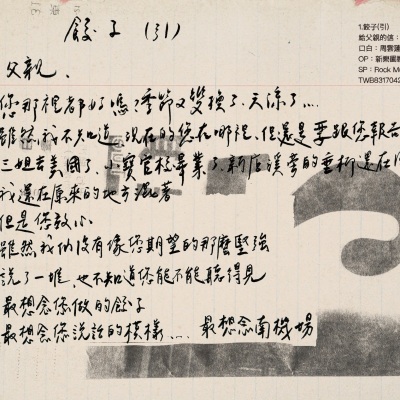 餃子 (引)
父親、
您那裡都好嗎?季節又變換了、天涼了...
雖然我不知道、現在的您在哪裡、但還是要跟您報告
三姐去美國了、小寶官校畢業了、新店溪旁的垂柳還在
我還在原來的地方混著
但是您放心
雖然我們沒有像您期望的那麼堅強
說了一堆、也不知道您能不能聽得見
最想念您做的餃子
最想念您說話的模樣... 最想念南機場
1.餃子(引)
給父親的信:
口白:周雲蓬
OP:新樂園
SP:Rock M
TWB8317042